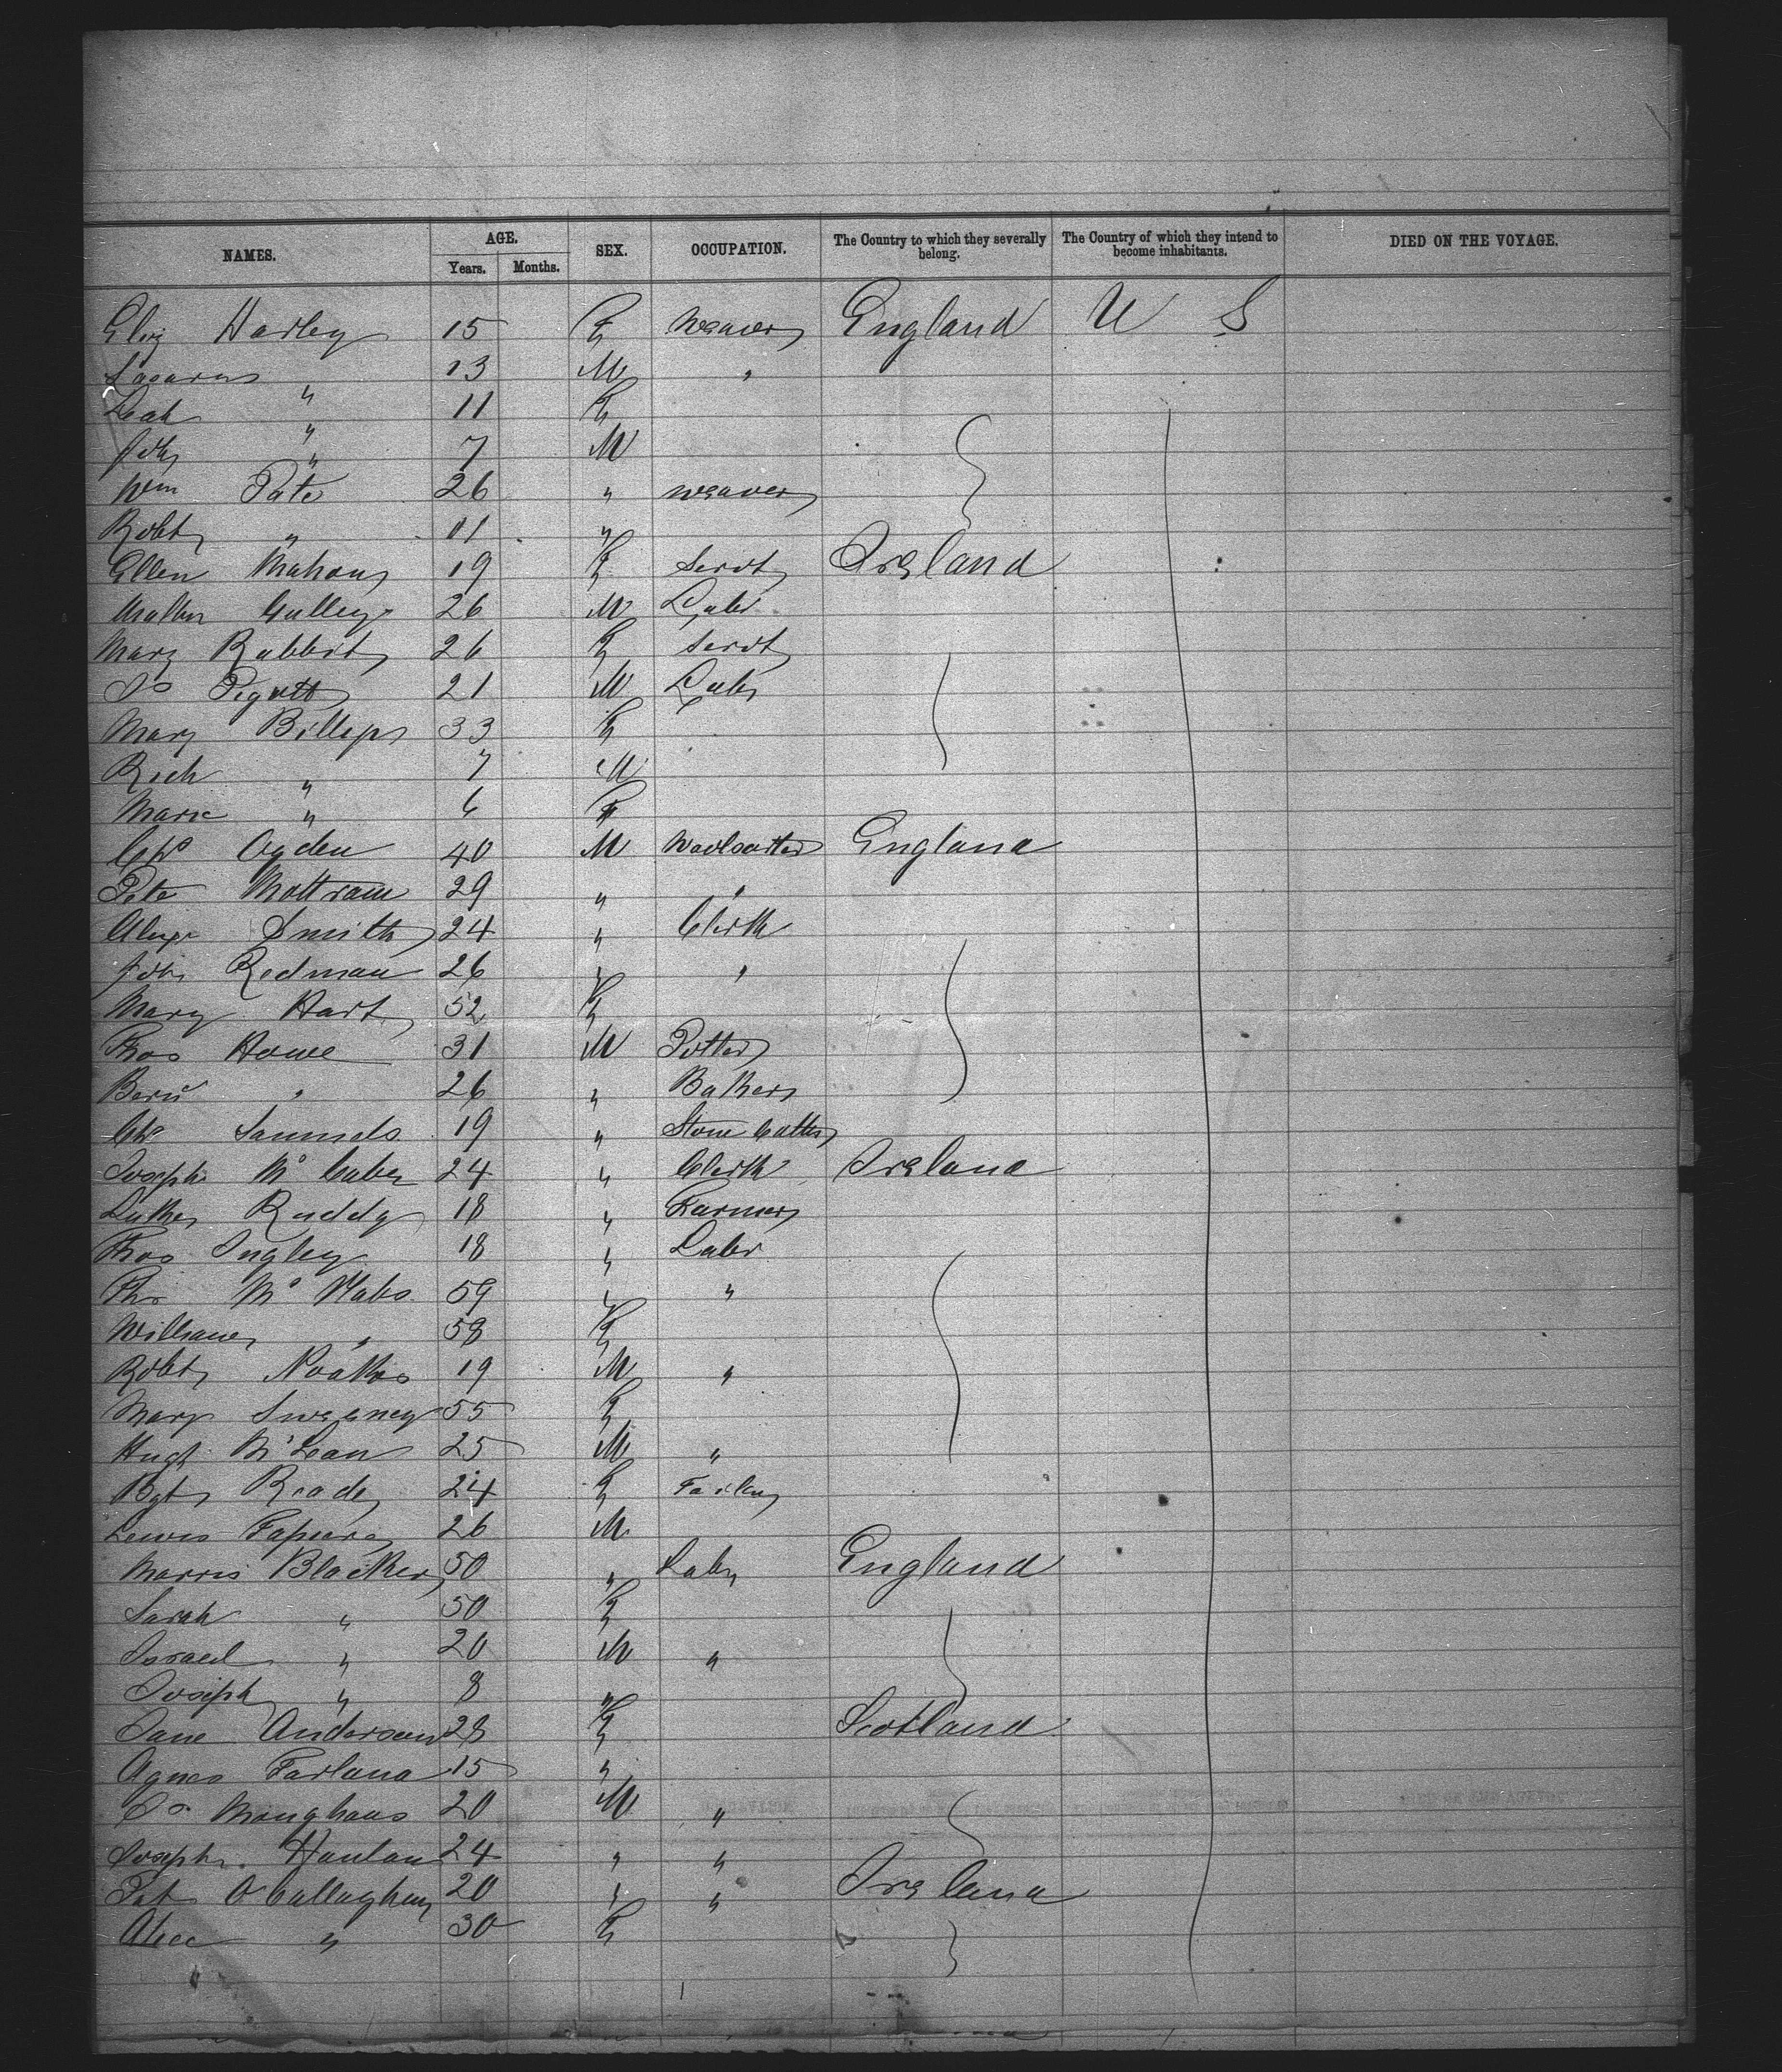 NAMES. AGE. SEX. OCCUPATION. The Country to which they severally belong. The Country of which they intend to become inhabitants. DIED ON THE VOYAGE.
Years. Months.
Eliz Harley 15 F Weaver England U S
Lazarus " 13 M "
Leah " 11 F
John " 7 M
Wm Pate 26 " weaver
Robt " 11 "
Ellen Mahony 19 F Servt Ireland
26 M Labr
Mary Rabbit 26 F Servt
Pigott 21 M Labr
Mary Billeps 33 F
Rich " 7 M
Marie " 6 F
Chs Ogden 40 M Woolsorter England
Peter Mottram 29 " "
Alexr Smith 24 " Clerk
John Redman 26 " "
Mary Hart 52 F
Thos Howe 31 M Potter
" 26 " Baker
Chs Samuels 19 " Stone Cutter
Joseph McCabe 24 " Clerk Ireland
Luther Ruddy 18 " Farmer
Thos Ingley 18 " Labr
59 " "
" 58 F
Robt Noakes 19 M "
Mary Sweeney 55 F
Hugh McLean 25 M "
Bgt Reade 24 F
Lewis 26 M
Morris Blacker 50 " Labr England
Sarah " 50 F
Israel " 20 M "
Joseph " 8 "
Jane Anderson 28 F Scotland
Agnes Farlana 15 "
20 M "
Joseph Hanlan 24 " "
Pat O'Callaghan 20 " " Ireland
Alice " 30 F